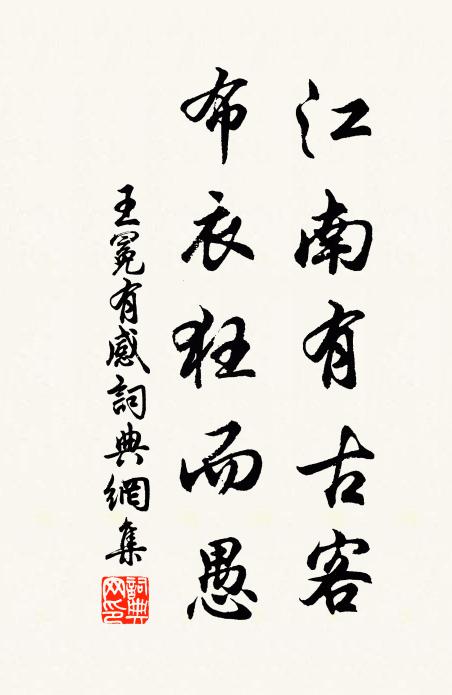 江南有古客
布衣狂而愚
王冕有感詞典網集
詞典網印